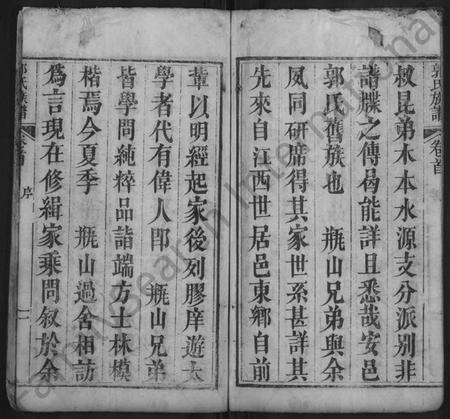 郭氏族譜 卷首
敘昆弟木本水源支分派別非
譜牒之傳曷能詳且悉哉安邑
郭氏舊族也 瓶山兄弟與余
夙同研席得其家世系甚詳其
先來自江西世居邑東鄉自前
輩以明經起家後列膠庠遊太
學者代有偉人郎 瓶山兄弟
皆學問純粹品詣端方士林模
楷焉今夏季 瓶山過舍相訪
為言現在修緝家乘問敘於余
郭氏族譜 卷首 序 一
FamilySearch International